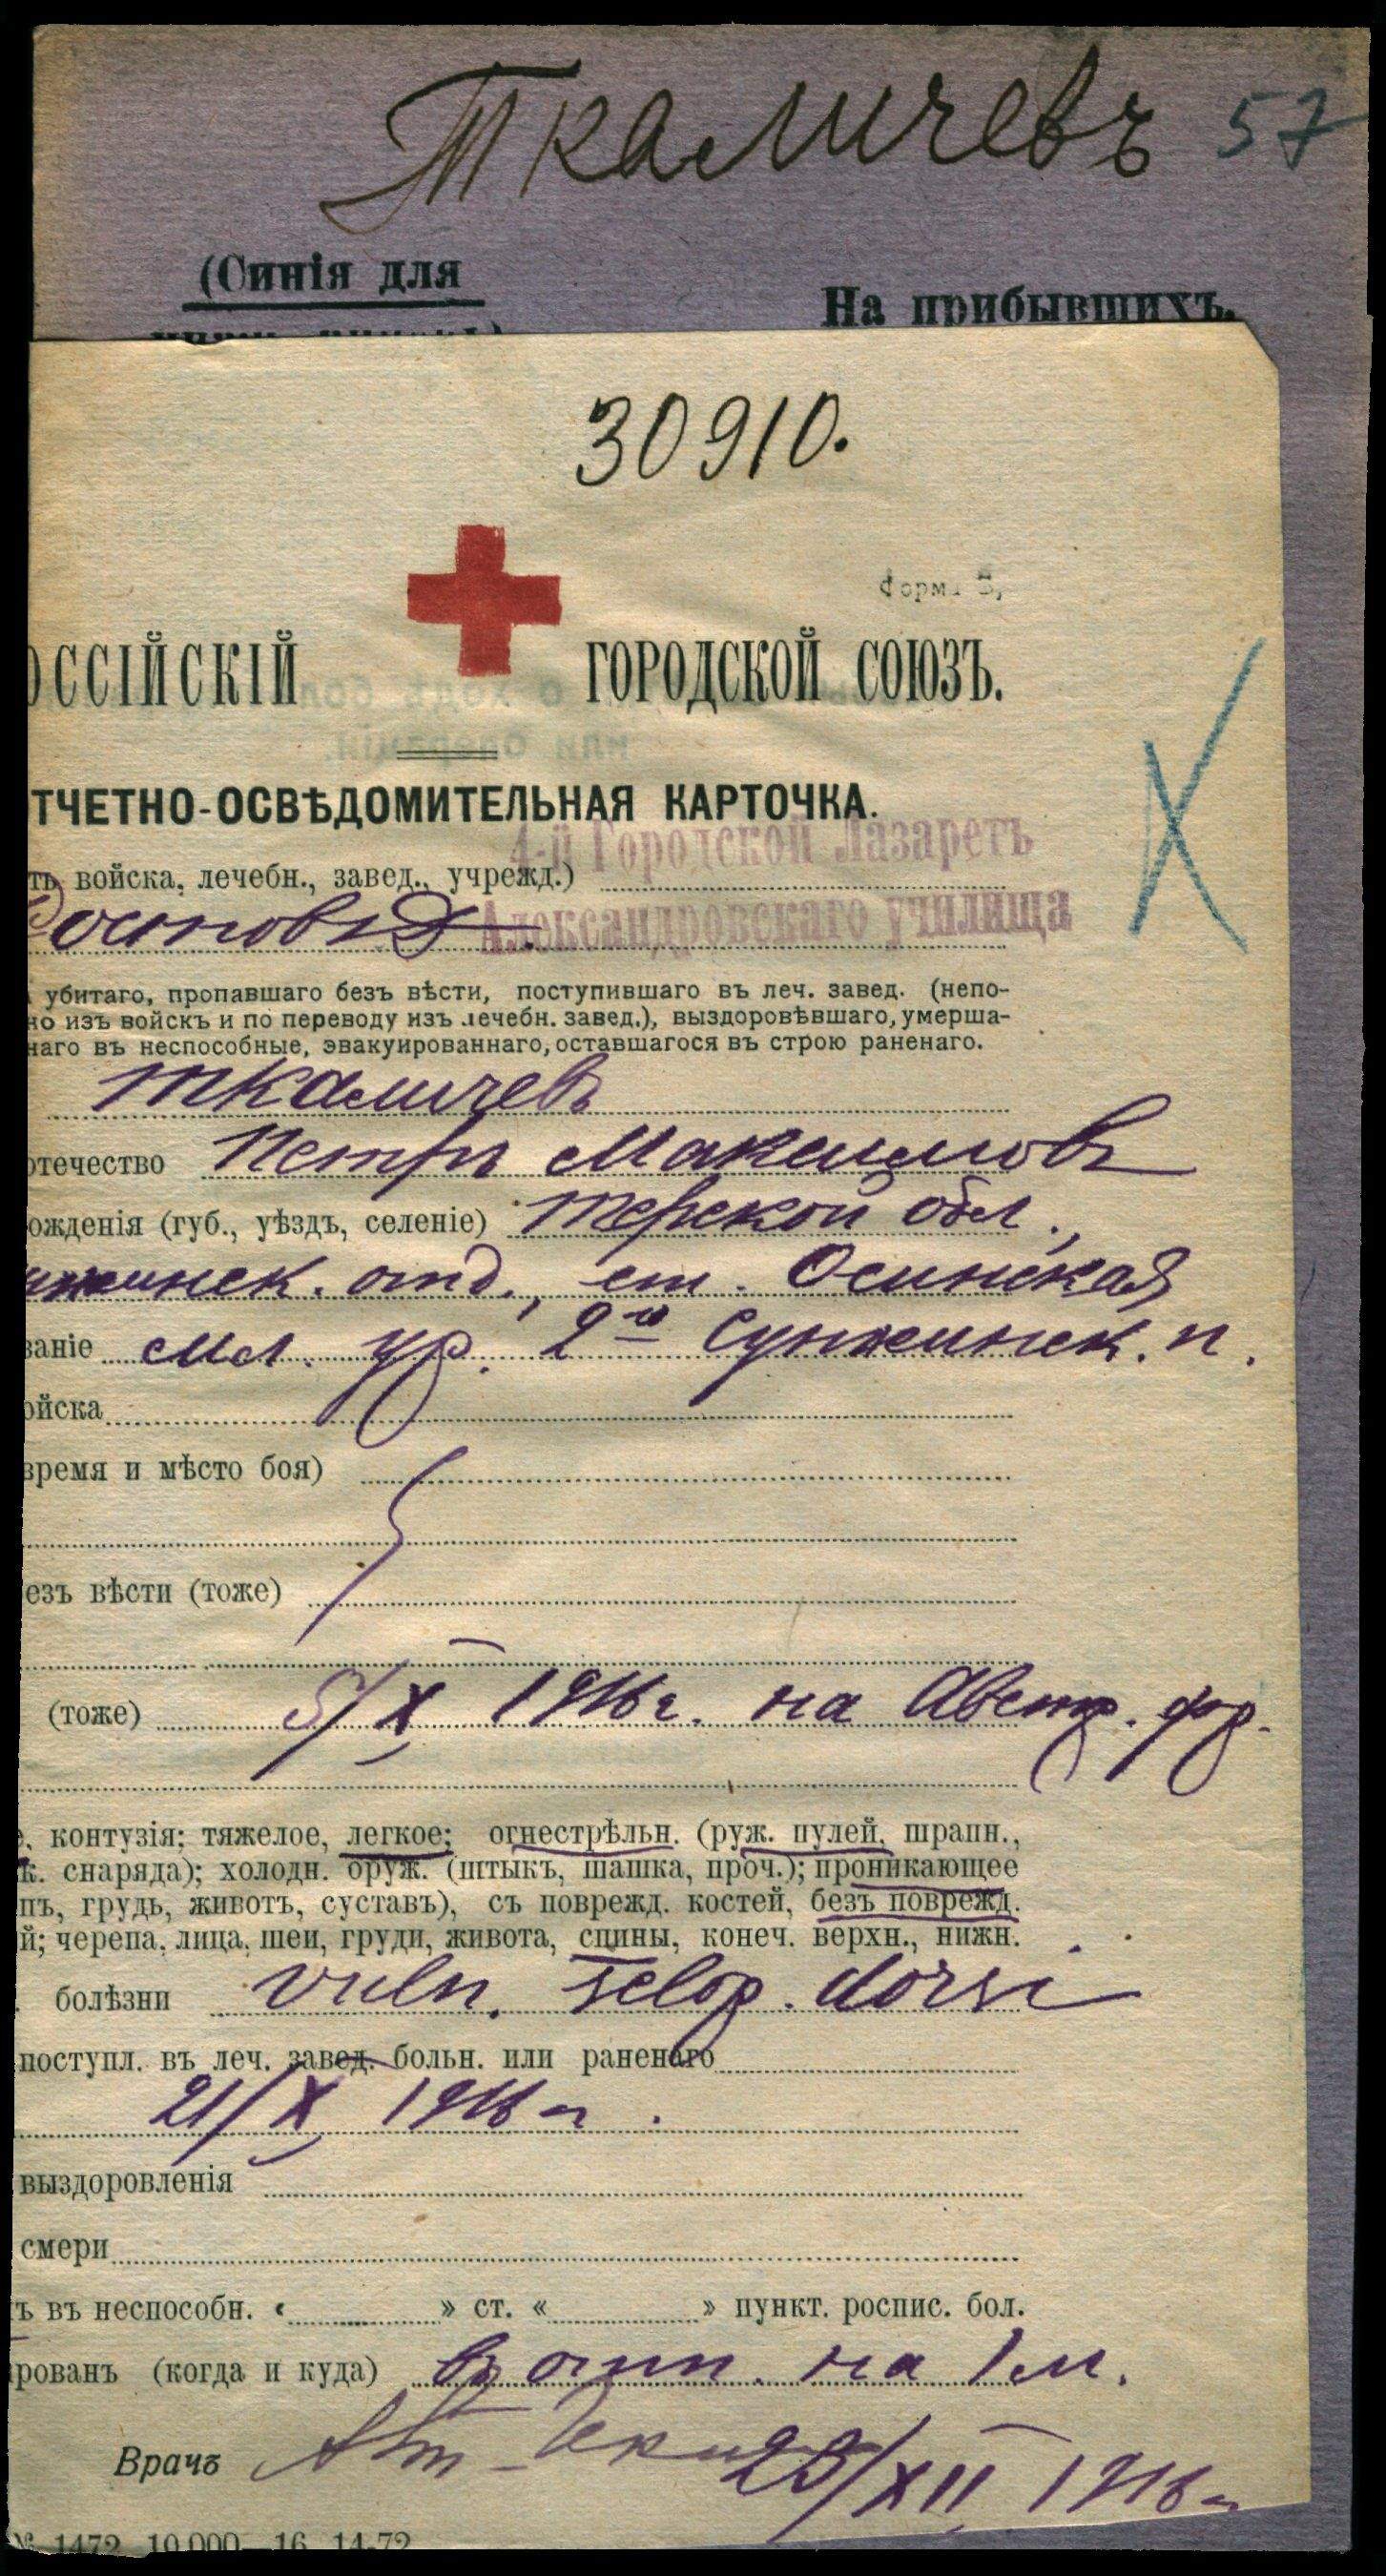 Ткаличевъ 57
(Синія для
На прибывшихъ.
30910.
Форма В,
ОССІЙСКІЙ ГОРОДСКОЙ СОЮЗЪ.
ТЧЕТНО-ОСВѢДОМИТЕЛЬНАЯ КАРТОЧКА.
4-й Городской Лазаретъ
ть войска, лечебн., завед., учрежд.)
Александровскаго училища
Ростовъ Д
убитаго, пропавшаго безъ вѣсти, поступившаго въ леч. завед. (непо-
но изъ войскъ и по переводу изъ лечебн. завед.), выздоровѣвшаго, умерша-
наго въ неспособные, эвакуированнаго, оставшагося въ строю раненаго.
Ткаличевъ
отечество Петръ Максимовъ
ожденія (губ., уѣздъ, селеніе) Терской обл.,
нжинск. отд., ст. Осинская
ваніе мл. ур. 2го Сунжинск. п.
ойска
время и мѣсто боя)
езъ вѣсти (тоже)
(тоже) 5/X 1916 г. на Австр. фр.
. контузія; тяжелое, легкое; огнестрѣльн. (руж. пулей, шрапн.,
к. снаряда); холодн. оруж. (штыкъ, шашка, проч.); проникающее
пъ, грудь, животъ, суставъ), съ поврежд. костей, безъ поврежд.
й; черепа, лица, шеи, груди, живота, спины, конеч. верхн., нижн.
болѣзни vuln. sclop. dorsi
поступл. въ леч. завед. больн. или раненаго
21/X 1916 г.
выздоровленія
смери
ъ въ неспособн. « » ст. « » пункт. роспис. бол.
рованъ (когда и куда) въ отп. на 1 м.
Врачъ
23/XII 1916 г.
№ 1472 10.000 16 14-72